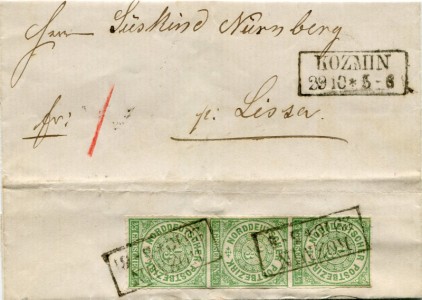 Herrn Süskind Nürnberg
KOZMIN
29 10 * 5 - 6
fr:
p. Lissa.
NORDDEUTSCHER POSTBEZIRK
NORDDEUTSCHER POSTBEZIRK
NORDDEUTSCHER POSTBEZIRK
KOZMIN